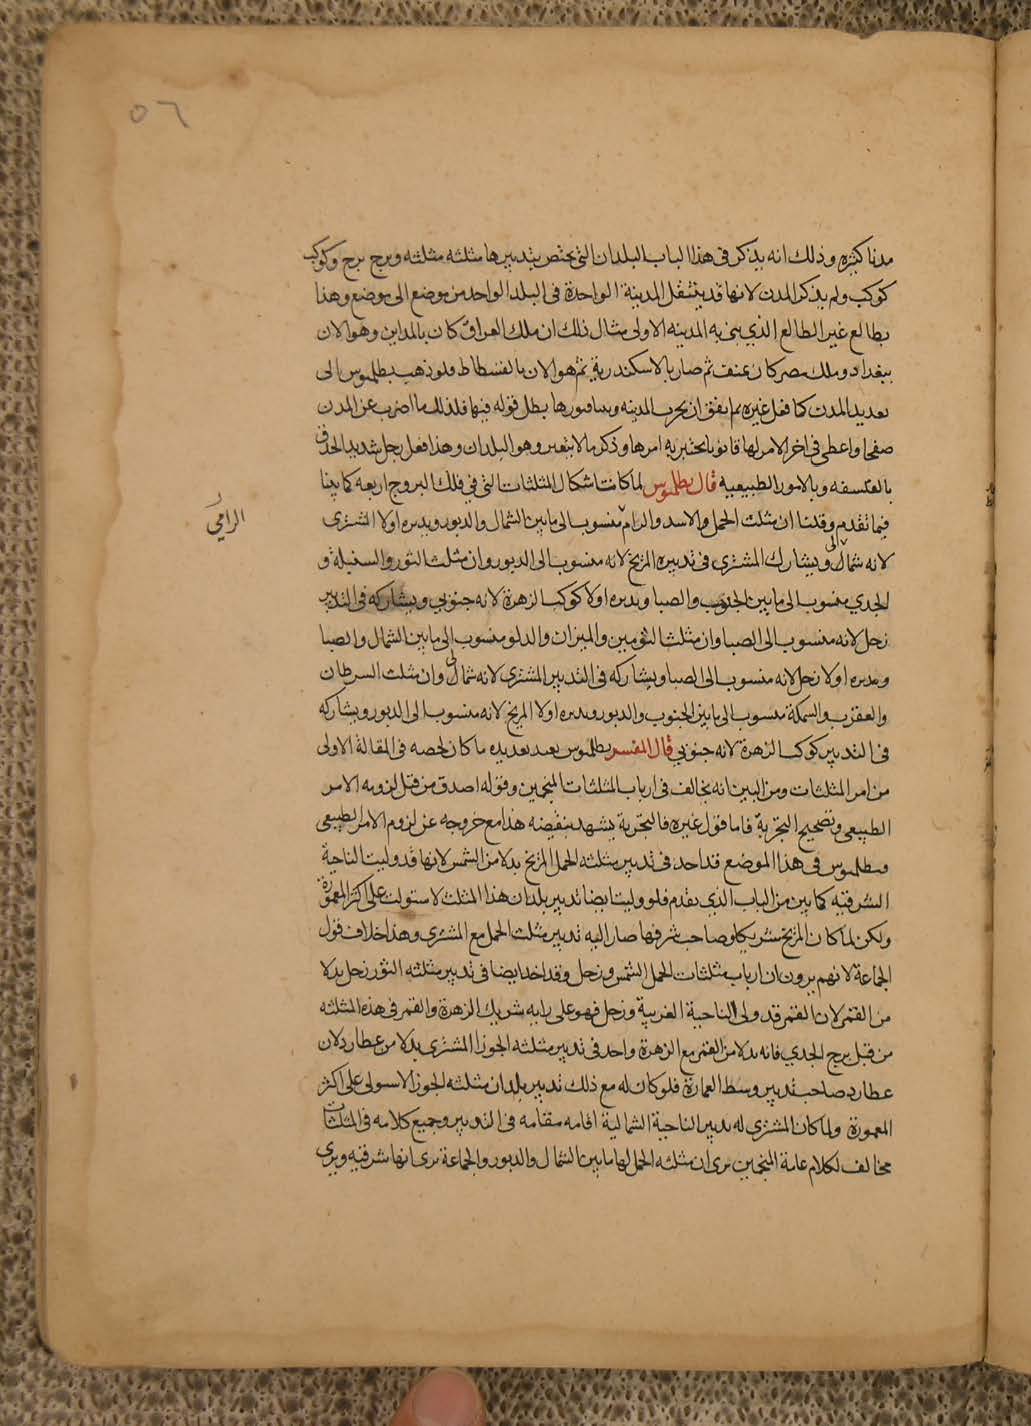 ٥٦
مدنا كثيره وذلك انه يذكر فى هذا الباب البلدان التى يختص بتدبيرها مثلثه مثلثه وبرج برج وكوكب
كوكب ولم يذكر المدن لانها قد ينتقل المدينة الواحدة فى البلد الواحد من موضع الى موضع وهذا
بطالع غير الطالع الذي بنى به المدينه الاولى مثال ذلك ان ملك العراق كان بالمداين وهو الان
ببغداد وملك مصر كان بمنف ثم صار بالاسكندرية ثم هو الان بالفسطاط فلو ذهب بطلميوس الى
تعديد المدن كما فعل غيره ثم اتفق ان يخرب المدينه وسورها بطل قوله فيها فلذلك ما اضرب عن المدن
صفحا واعطى فى اخر الامر لها قانونا يختبر به امرها وذكر ما لا يتغير وهو البلدان وهذا فعل رجل شديد الحذق
بالفلسفه وبالامور الطبيعيه قال بطلميوس لما كانت اشكال المثلثات التى فى فلك البروج اربعه كما بينا
فيما تقدم وقلنا ان مثلث الحمل والاسد والرام منسوب الى ما بين الشمال والدبور ويدبره اولا المشترى
الرامى
لانه شمالى ويشارك المشترى فى تدبيره المريخ لانه منسوب الى الدبور وان مثلث الثور والسنبلة و
الجدي منسوب الى ما بين الجنوب والصبا ويدبره اولا كوكب الزهرة لانه جنوبي ويشاركه فى التدبير
زحل لانه منسوب الى الصبا وان مثلث التومين والميزان والدلو منسوب الى ما بين الشمال والصبا
ويدبره اولا زحل لانه منسوب الى الصبا ويشاركه فى التدبير المشترى لانه شمالى وان مثلث السرطان
والعقرب والسمكة منسوب الى ما بين الجنوب والدبور ويدبره اولا المريخ لانه منسوب الى الدبور ويشاركه
فى التدبير كوكب الزهرة لانه جنوبي قال المفسر بطلميوس بعد تعديده ما كان لخصه فى المقالة الاولى
من امر المثلثات ومن البين انه يخالف فى ارباب المثلثات المنجمين وقوله اصدق من قبل لزومه الامر
الطبيعى وتصحيح التجربة فاما قول غيره فالتجربة يشهد بنقيضه هذا مع خروجه عن لزوم الامر الطبيعى
وبطلميوس فى هذا الموضع قد اخذ فى تدبير مثلثه الحمل المريخ بدلا من الشمس لانها قد وليت الناحية
الشرقيه كما بين من الباب الذي تقدم فلو وليت ايضا تدبير بلدان هذا المثلث لاستولت على اكثر المعمورة
ولكن لما كان المريخ شريكا وصاحب شرفها صار اليه تدبير مثلث الحمل مع المشترى وهذا خلاف قول
الجماعة لانهم يرون ان ارباب مثلثات الحمل الشمس وزحل وقد اخذ ايضا فى تدبير مثلثه الثور زحل بدلا
من القمر لان القمر قد ولى الناحية الغربية وزحل فهو على رايه شريك الزهرة والقمر فى هذه المثلثه
من قبل برج الجدي فانه بدلا من القمر مع الزهرة واخذ فى تدبير مثلثه الجوزا المشترى بدلا من عطارد لان
عطارد صاحب تدبير وسط العمارة فلو كان له مع ذلك تدبير بلدان مثلثه الجوزا لاستولى على اكثر
المعمورة ولما كان المشترى له تدبير الناحية الشمالية اقامه مقامه فى التدبير وجميع كلامه فى المثلثات
مخالف لكلام عامة المنجمين يرى ان مثلثه الحمل لها ما بين الشمال والدبور والجماعة ترى انها شرقيه ويرى